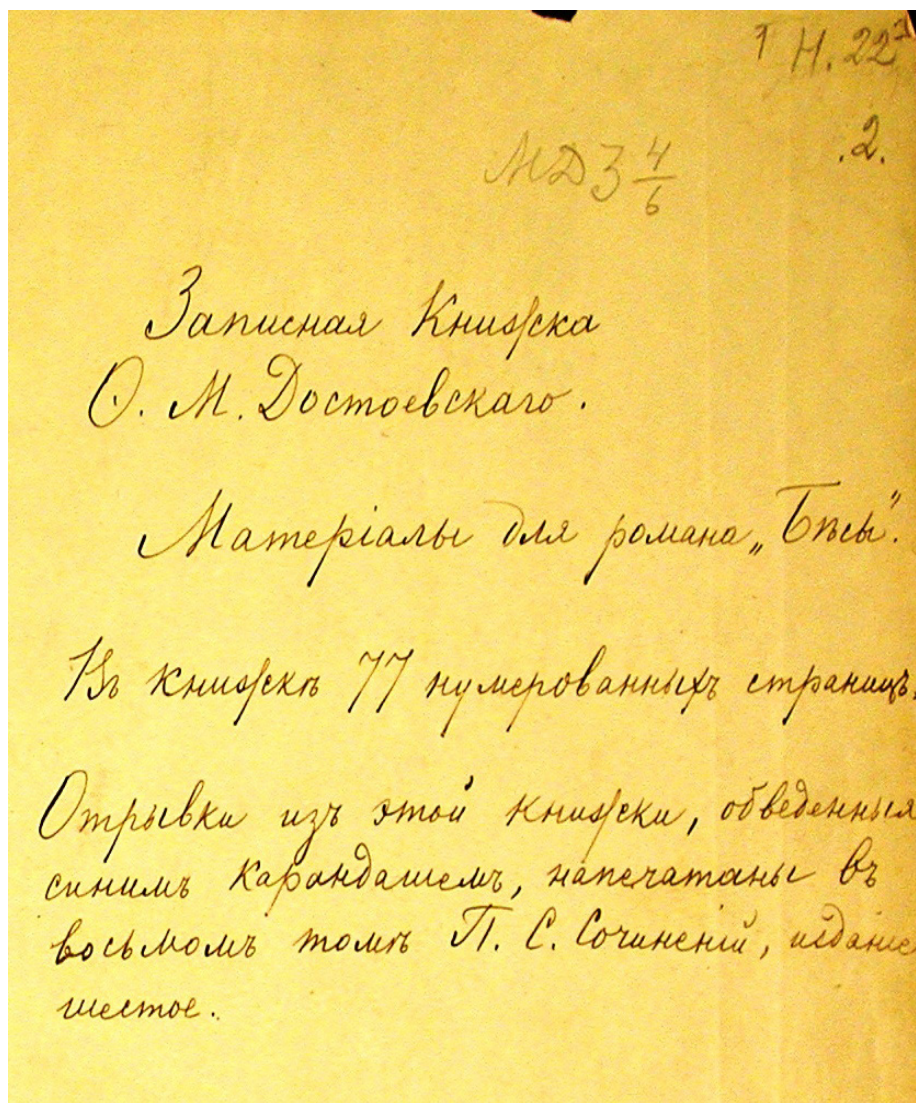 1 Н. 22
.2.
МДЗ 4/6
Записная Книжка
Ѳ. М. Достоевскаго.
Матеріалы для романа „Бѣсы".
Въ книжкѣ 77 нумерованныхъ страницъ.
Отрывки изъ этой книжки, обведенныя
синимъ карандашемъ, напечатаны въ
восьмомъ томѣ П. С. Сочиненій, изданіе
шестое.